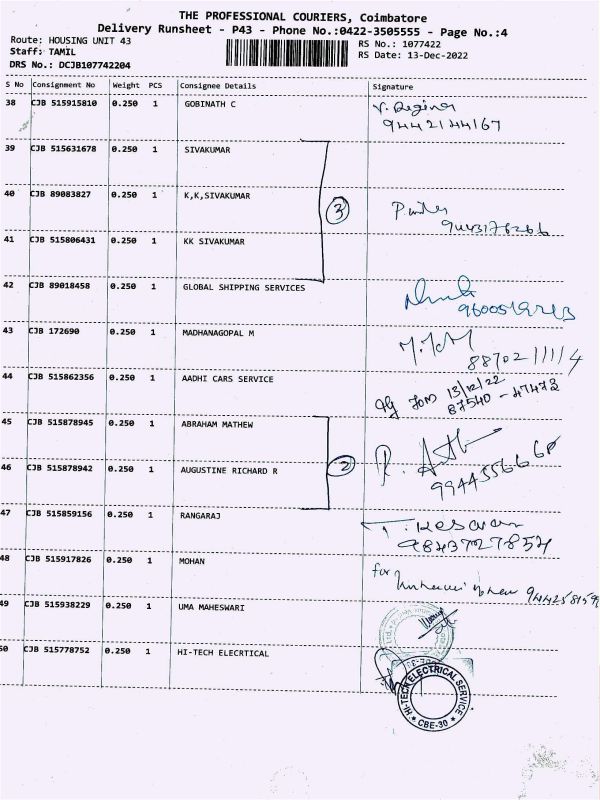 THE PROFESSIONAL COURIERS, Coimbatore
Delivery Runsheet - P43 - Phone No.:0422-3505555 - Page No.:4
Route: HOUSING UNIT 43
Staff: TAMIL
DRS No.: DCJB107742204
RS No.: 1077422
RS Date: 13-Dec-2022
S No Consignment No Weight PCS Consignee Details Signature
38 CJB 515915810 0.250 1 GOBINATH C V. Regina
9442144167
39 CJB 515631678 0.250 1 SIVAKUMAR
40 CJB 89083827 0.250 1 K,K,SIVAKUMAR
3
41 CJB 515806431 0.250 1 KK SIVAKUMAR
42 CJB 89018458 0.250 1 GLOBAL SHIPPING SERVICES
43 CJB 172690 0.250 1 MADHANAGOPAL M
887021114
44 CJB 515862356 0.250 1 AADHI CARS SERVICE
13/12/22
87540 - 47472
45 CJB 515878945 0.250 1 ABRAHAM MATHEW
2
46 CJB 515878942 0.250 1 AUGUSTINE RICHARD R
47 CJB 515859156 0.250 1 RANGARAJ T. Kesavan
9843727854
48 CJB 515917826 0.250 1 MOHAN for
49 CJB 515938229 0.250 1 UMA MAHESWARI
50 CJB 515778752 0.250 1 HI-TECH ELECRTICAL
HI-TECH ELECTRICAL SERVICE
* CBE-30 *